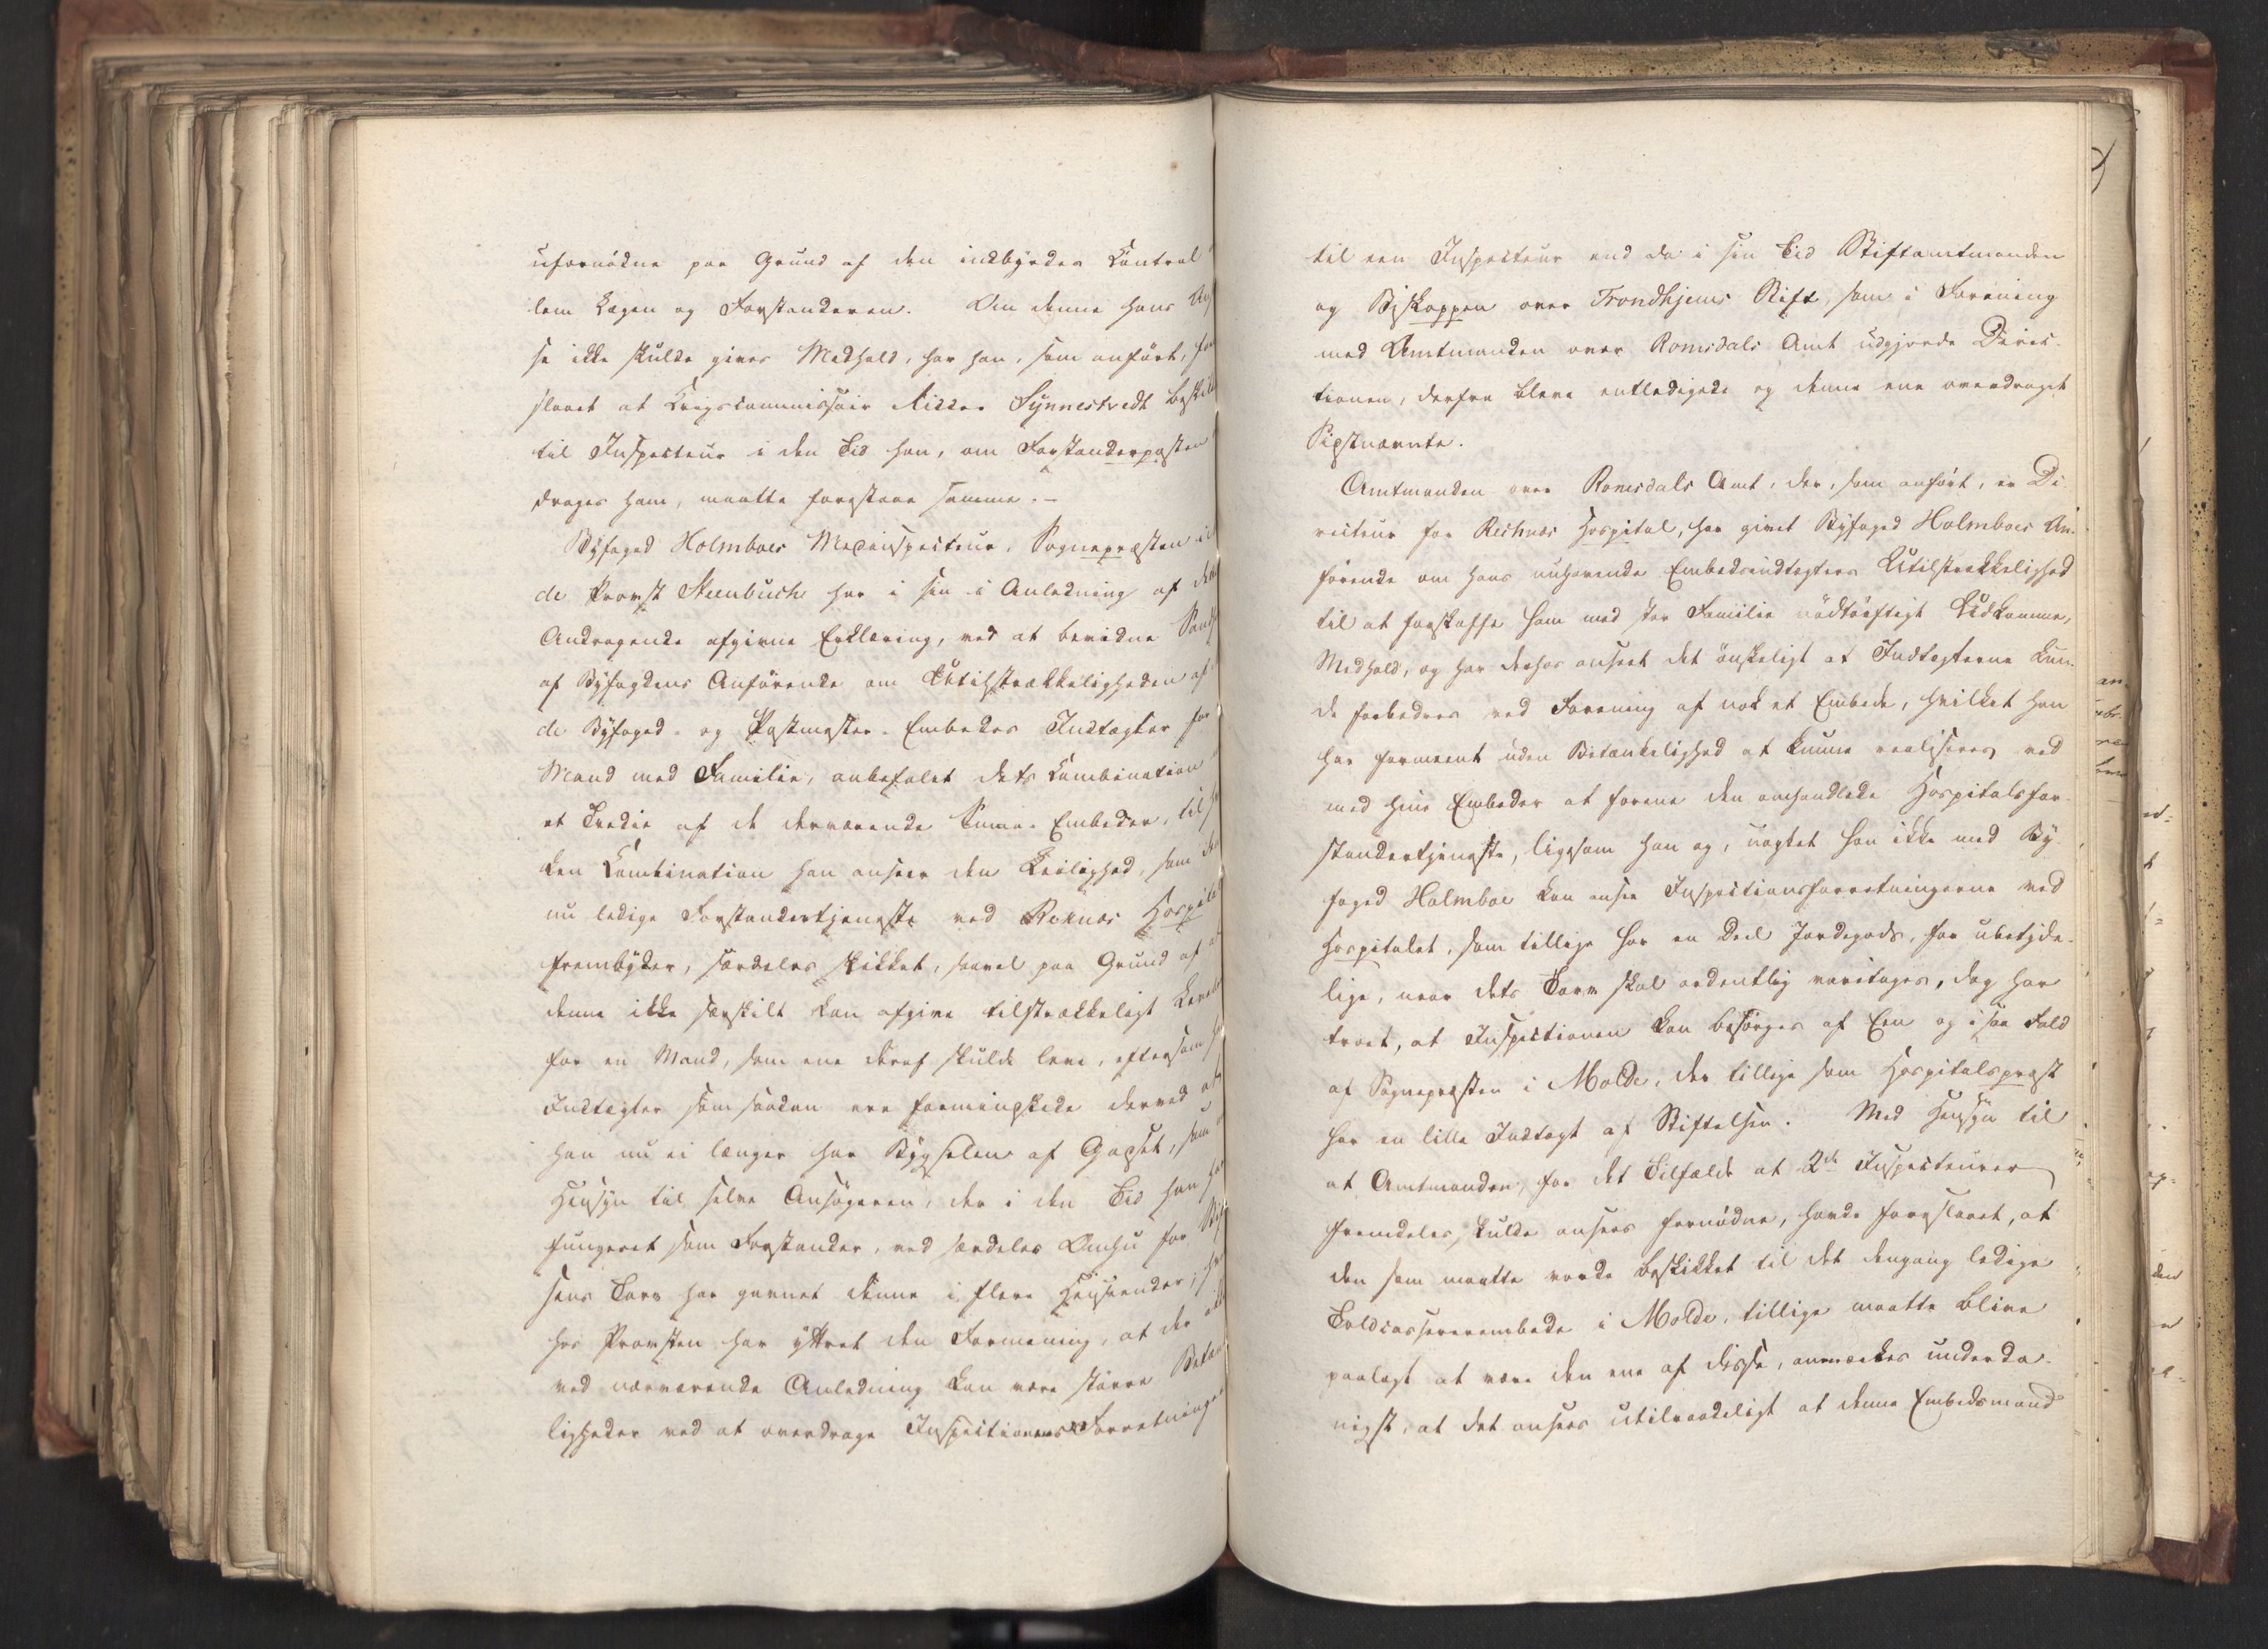 ufornødne paa Grund af den indbyrdes Control
lem Lægen og Forstanderen. Om denne hans
se ikke skulde gives Medhold, har han, som anført, for
slaaet at Krigscommissair Ridder Synnestvedt beskik
til Inspecteur i den Tid han, om Forstanderposten
drages ham, maatte forestaae samme. -
Byfoged Holmboes Medinspecteur, Sognepræsten i
de Provst Steenbuch har i sin i Anledning af dette
Andragende afgivne Erklæring, ved at bevidne Sand
af Byfogdens Anførende om Utilstrækkeligheden af
de Byfoged- og Postmester-Embeders Indtægter for
Mand med Familie, anbefalet dets Combination
et Tredie af de derværende Embeder, til
ken Combination han anseer den Leilighed, som den
nu ledige Forstandertjeneste ved Reknæs Hospital
frembyder, særdeles skikket, saavel paa Grund af at
denne ikke særskilt kan afgive tilstrækkeligt Leve
for en Mand, som ene deraf skulde leve, eftersom
Indtægter som saadan ere formindskede derved at
han nu ei længer har Bygselen af Godset, som
Hensyn til selve Ansøgeren, der i den Tid han har
fungeret som Forstander, ved særdeles Omhu for Stif
sens Tarv har gavnet denne i flere Henseender;
hos Provsten har yttret den Formening, at der
ved nærværende Anledning kan være større Betæn
ligheder ved at overdrage Inspectionens Forretninger
til een Inspecteur end da i sin Tid Stiftamtmanden
og Biskoppen over Trondhjems Stift, som i Forening
med Amtmanden over Romsdals Amt udgjorde Direc-
tionen, derfra bleve entledigede og denne ene overdraget
Sidstnævnte.
Amtmanden over Romsdals Amt, der, som anført, er Di-
recteur for Recknæs Hospital, har givet Byfoged Holmboes An-
førende om hans nuhavende Embedsindtægters Utilstrækkelighed
til at forskaffe ham med stor Familie nødtørftigt Udkomme,
Medhold, og har derhos anseet det ønskeligt at Indtægterne kun-
de forbedres ved Forening af nok et Embede, hvilket han
har formeent uden Betænkelighed at kunne realiseres ved
med hine Embeder at forene den omhandlede Hospitalsfor-
standertjeneste, ligesom han og, uagtet han ikke med By-
foged Holmboe kan ansee Inspectionsforretningerne ved
Hospitalet, som tillige har en Deel Jordegods, for ubetyde-
lige, naar dets Tarv skal ordentlig varetages, dog har
troet, at Inspectionen kan besørges af Een og i saa Fald
af Sognepræsten i Molde, der tillige som Hospitalspræst
har en lille Indtægt af Stiftelsen. Med Hensyn til
at Amtmanden, for det Tilfælde at 2de Inspecteurer
fremdeles skulde ansees fornødne, havde foreslaaet, at
den som maatte vorde beskikket til det dengang ledige
Toldcassererembede i Molde, tillige maatte blive
paalagt at være den ene af disse, anmærkes underda-
nigst, at det ansees utilraadeligt at denne Embedsmand